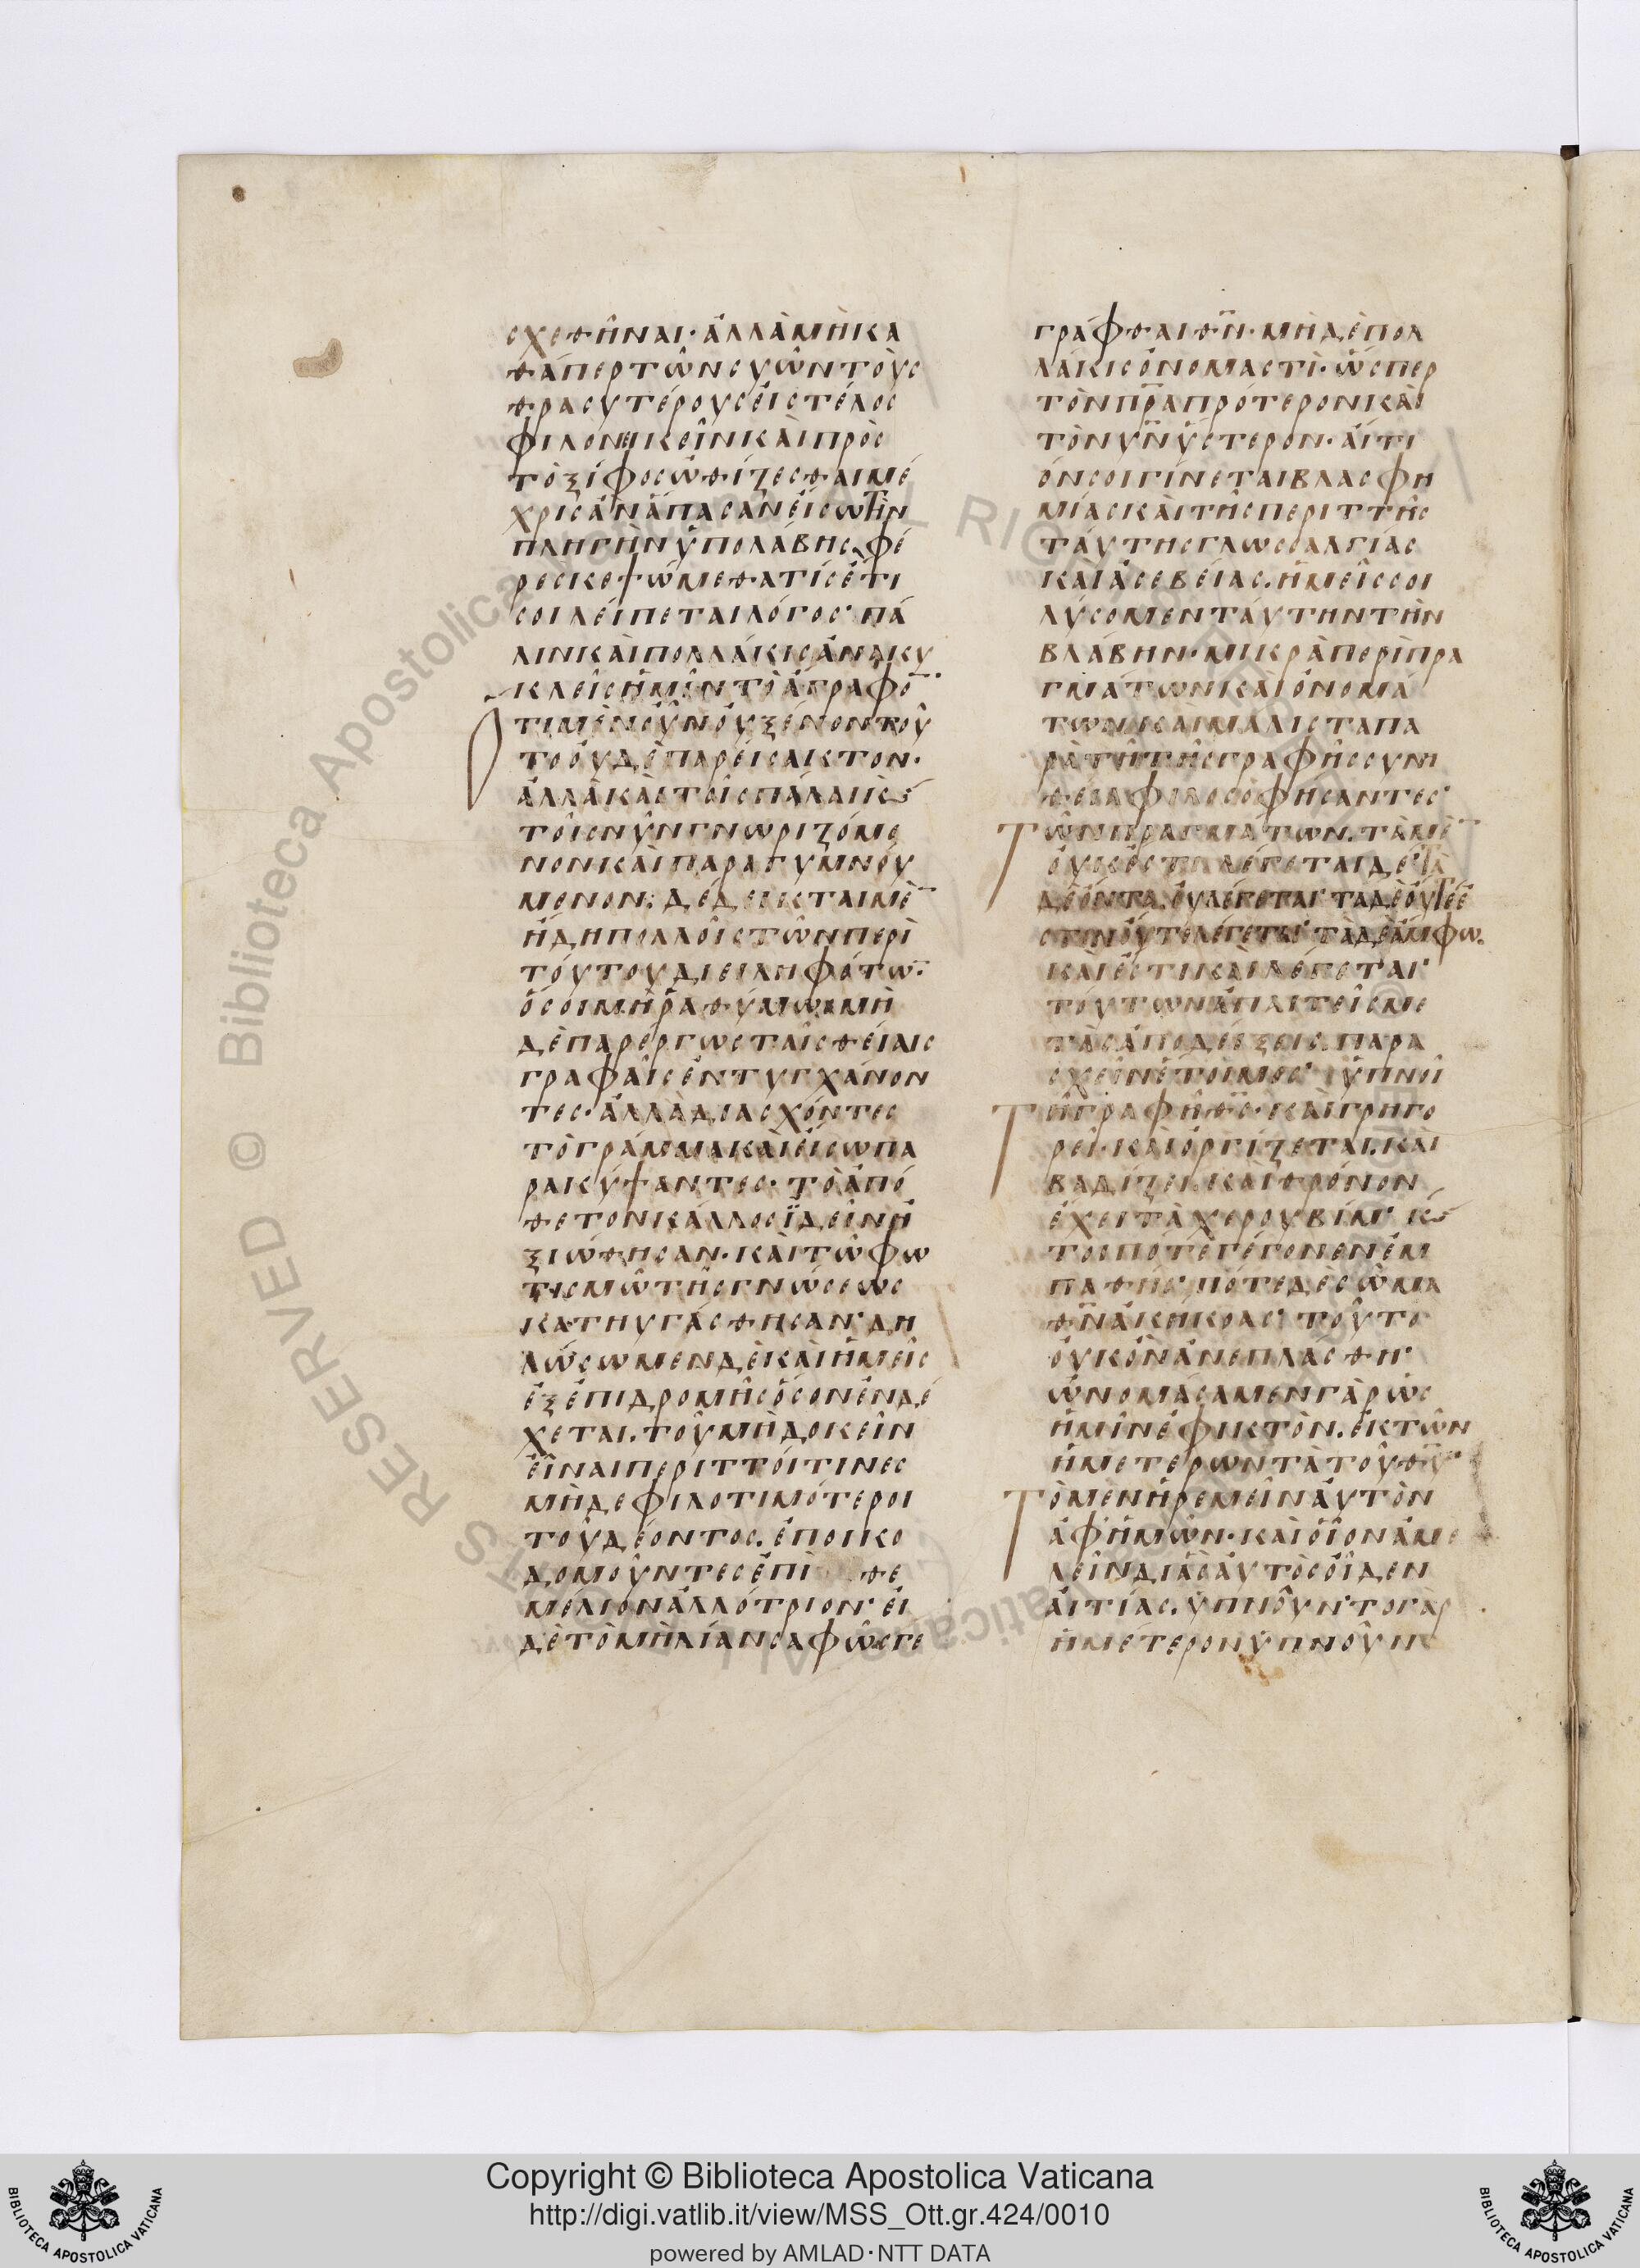 σχεθῆναι· ἀλλὰ μὴ κα
θάπερ τῶν συῶν τοὺς
θρασυτέρους εἰς τέλος
φιλονεικεῖν καὶ πρὸς
τὸ ξίφος ὠθίζεσθαι μέ
χρις ἂν ἅπασαν εἴσω τὴν
πληγὴν ὑπολάβῃς· φέ
ρε σκεψώμεθα τίς ἔτι
σοι λείπεται λόγος· πά
λιν καὶ πολλάκις ἀνακυ
κλεῖς ἡμῖν τὸ ἄγραφο̅
τι μὲν οὖν οὐ ξένον τοῦ
το οὐδὲ παρείσακτον·
ἀλλὰ κἀς τοῖς πάλαι κ̀
τοῖς νῦν γνωριζόμε
νον καὶ παραγυμνού
μενον· δέδεικται μὲ̅
ἤδη πολλοῖς τῶν περὶ
τούτου διειληφότω̅·
ὅσοι μὴ ῥαθύμως μὴ
δὲ παρέργως ταῖς θείαις
γραφαῖς ἐντυγχάνον
τες· ἀλλὰ διασχόντες
τὸ γράμμα καὶ εἴσω πα
ρακύψαντες· τὸ ἀπό
θετον κάλλος ἰδεῖν ἠ
ξιώθησαν· καὶ τῷ φω
τισμῷ τῆς γνώσεως
κατηυγάσθησαν· δη
λώσωμεν δὲ καὶ ἡμεῖς
ἐξ ἐπιδρομῆς ὅσον ἐνδέ
χεται. τοῦ μὴ δοκεῖν
εἶναι περιττοί τινες
μὴδε φιλοτιμότεροι
τοῦ δέοντος. ἐποικο
δομοῦντες ἐπὶ θε
μέλιον ἀλλότριον· εἰ
δὲ τὸ μὴ λίαν σαφῶς γε
γράφθαι θ̅ν̅· μὴ δὲ πολ
λάκις ὀνομαστὶ· ὥσπερ
τὸν π̅ρ̅α πρότερον καὶ
τὸν υ̅ν̅ ὕστερον· αἴτι
όν σοι γίνεται βλασφη
μίας καὶ τῆς περιττῆς
ταύτης γλωσσαλγίας
καὶ ἀσεβείας. ἡμεῖς σοι
λύσομεν ταύτην τὴν
βλάβην· μικρὰ περὶ πρα
γμάτων καὶ ὀνομά
των καὶ μάλιστα πα
ρὰ τῇ τῆς γραφῆς συνη
θεία φιλοσοφήσαντες·
Τῶν πραγμάτων. τὰ μὲ̅
οὐκ ἔστι λέγεται δέ· τὰ
δὲ ὄντα, οὐ λέγεται· τὰ δὲ οὔτε ἔ
στιν οὔτε λέγεται· τὰ δὲ ἄμφω.
καὶ ἔστι καὶ λέγεται·
τούτων ἀπαιτεῖς με
τὰς ἀποδείξεις. παρα
σχεῖν ἕτοιμος· ὑπνοῖ
Τῇ γραφῇ θ̅ς̅· καὶ γρηγο
ρεῖ· καὶ ὀργίζεται· καὶ
βαδίζει· καὶ θρόνον
ἔχει τὰ χερουβίμ· κ̀
τοι πότε γέγονεν ἐμ
παθής· πότε δὲ σῶμα
θ̅ν̅ ἀκήκοας· τοῦτο
οὐκ ὂν ἀνεπλάσθη·
ὠνομάσαμεν γὰρ ὡς
ἡμῖν ἐφικτὸν. ἐκ τῶν
ἡμετέρων τὰ τοῦ θ̅υ̅·
Τὸ μὲν ἠρεμεῖν αὐτὸν
ἀφ' ἡμῶν· καὶ οἷον ἀμε
λεῖν δι' ἃς αὐτὸς οἶδεν
αἰτίας. ὑπνοῦν· τὸ γὰρ
ἡμέτερον ὑπνοῦν
Copyright © Biblioteca Apostolica Vaticana
http://digi.vatlib.it/view/MSS_Ott.gr.424/0010
powered by AMLAD·NTT DATA